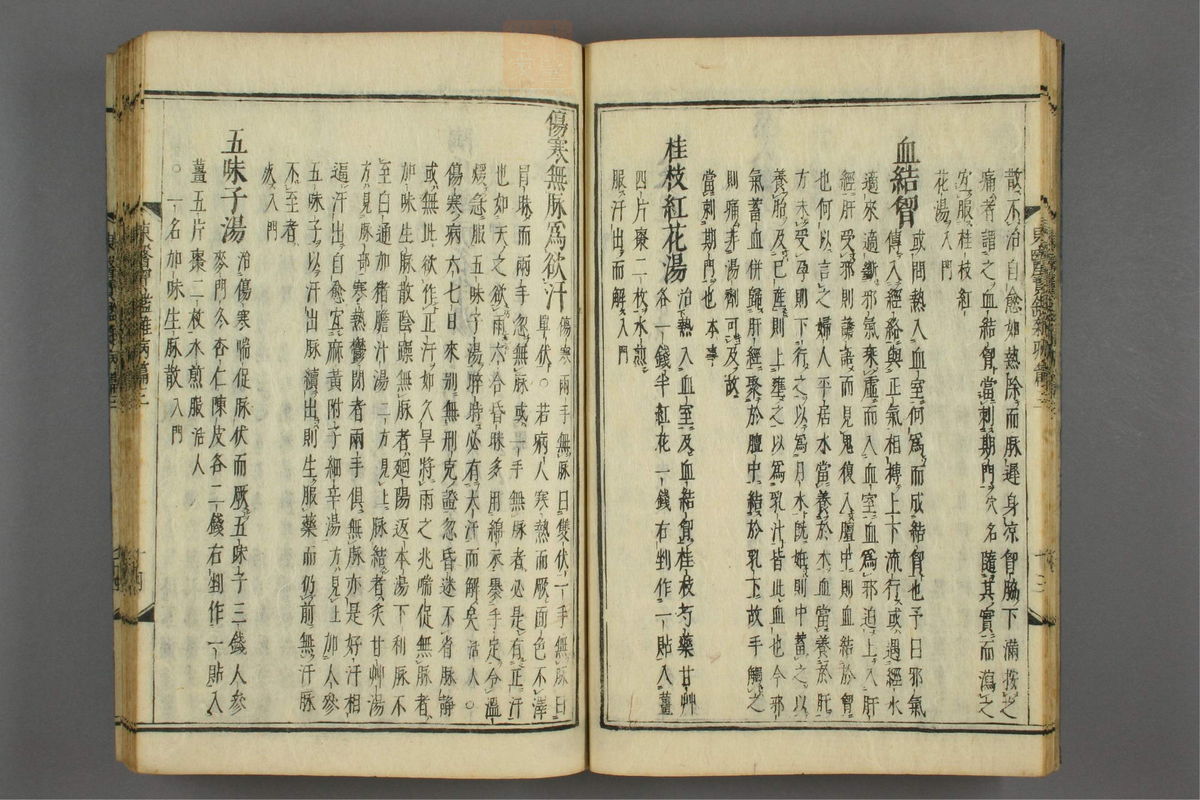 散不治自愈如熱除而脉遲身凉胷脇下滿按之
痛者謂之血結胷當刺期門穴名隨其實而瀉之
宜服桂枝紅
花湯入門
血結胷
或問熱入血室何爲而成結胷也予曰邪氣
傳入經絡與正氣相搏上下流行或遇經水
適來適斷邪氣乘虛而入血室血爲邪迫上入肝
經肝受邪則譫語而見鬼復入膻中則血結於胷
也何以言之婦人平居水當養於木血當養於肝
方未受孕則下行之以爲月水既妊則中蓄之以
養胎及已産則上壅之以爲乳汁皆此血也今邪
氣蓄血併歸肝經聚於膻中結於乳下故手觸之
則痛非湯劑可及故
當刺期門也本事
桂枝紅花湯
治熱入血室及血結胷桂枝芍藥甘艸
各一錢半紅花一錢右剉作一貼入薑
四片棗二枚水煎
服汗出而解入門
傷寒無脉爲欲汗
傷寒兩手無脉曰雙伏一手無脉曰
單伏○若病人寒熱而厥面色不澤
冒昧而兩手忽無脉或一手無脉者必是有正汗
也如天之欲雨六合昏昧多用綿衣裹手足令溫
煖急服五味子湯移時必有大汗而解矣活人○
傷寒病六七日來別無刑克證忽昏迷不省脉靜
或無此欲作正汗如久旱將雨之兆喘促無脉者
加味生脉散陰躁無脉者廻陽返本湯下利脉不
至白通加猪膽汁湯二方見上脉結者炙甘艸湯
方見脉部寒熱鬱閉者兩手俱無脉亦是好汗相
逼汗出自愈宜麻黃附子細辛湯方見上加人參
五味子以汗出脉續出則生服藥而仍前無汗脉
不至者
死入門
五味子湯
治傷寒喘促脉伏而厥五味子三錢人參
麥門冬杏仁陳皮各二錢右剉作一貼入
薑五片棗二枚水煎服活人
○一名加味生脉散入門
東醫寶鑑雜病篇三